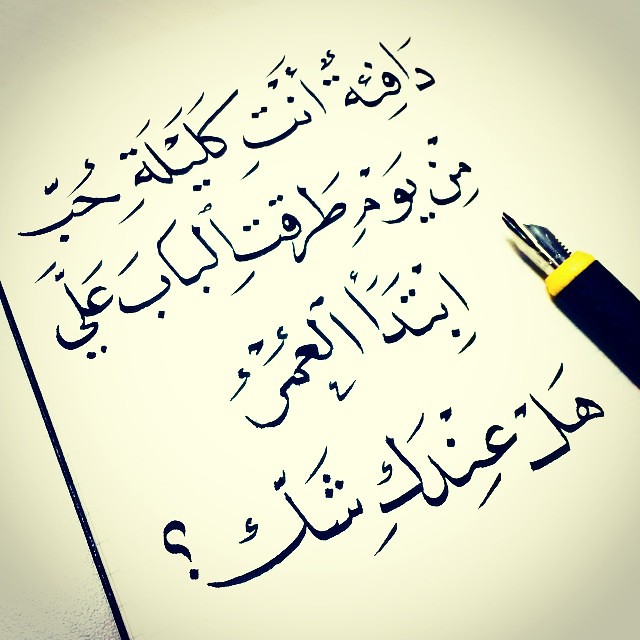 دَافِئَةٌ أَنْتِ كَلَيْلَةِ حُبّ
مِنْ يَوْمِ طَرَقتِ البابَ عَلَيَّ
اِبْتَدَأَ الْعُمْرُ
هَلْ عِنْدَكِ شَكّ ؟